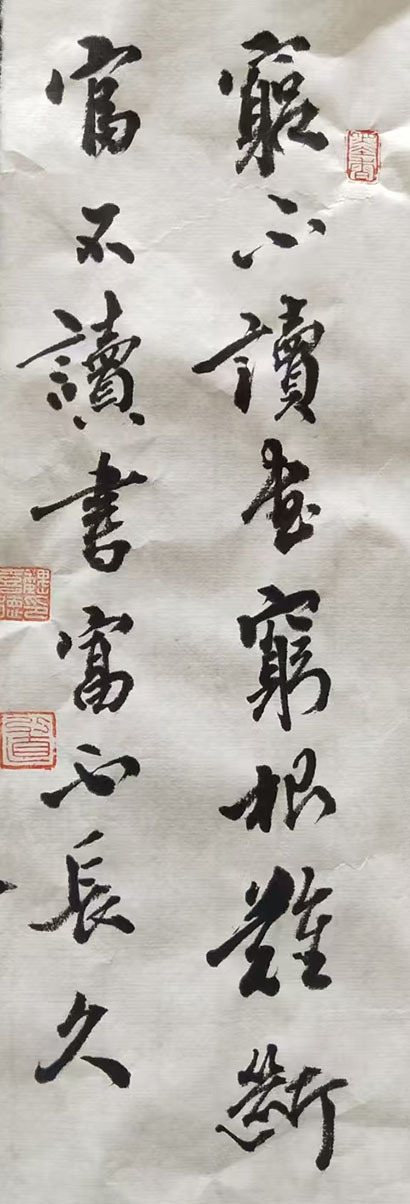 窮不讀書窮根難斷
富不讀書富不長久